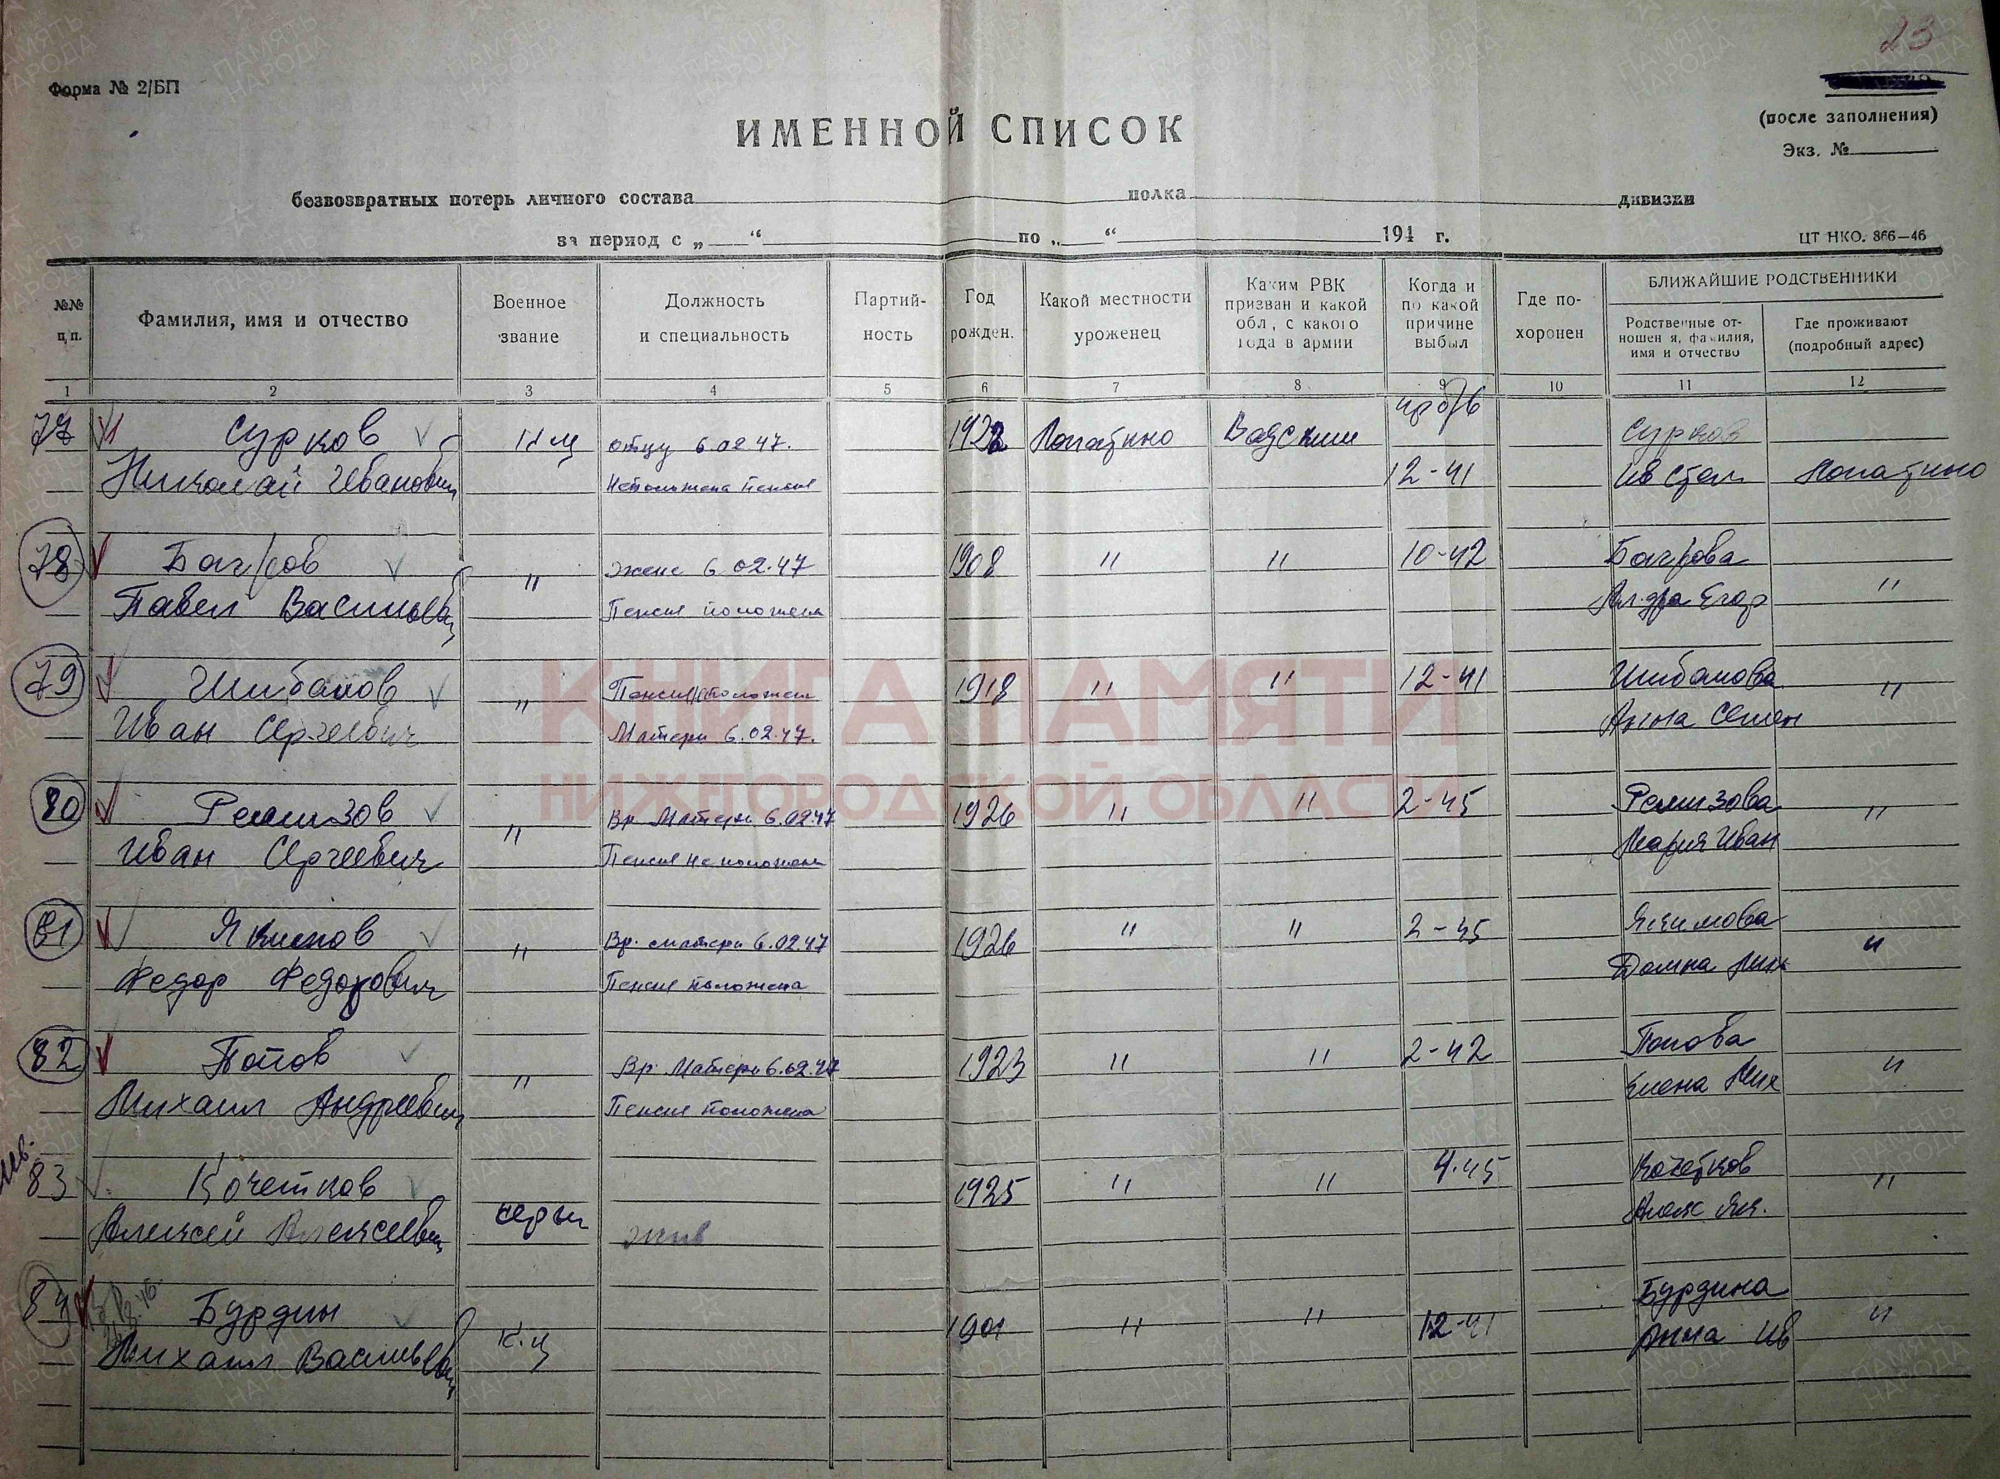 23
Форма № 2/БП
(после заполнения)
ИМЕННОЙ СПИСОК
Экз. №
безвозвратных потерь личного состава полка дивизии
за период с „ “ по „ “ 194 г.
ЦТ НКО. 866—46
№№ п,п.
Фамилия, имя и отчество
Военное звание
Должность и специальность
Партий-
ность
Год рожден.
Какой местности уроженец
Каким РВК призван и какой обл, с какого года в армии
Когда и по какой причине выбыл
Где по-
хоронен
БЛИЖАЙШИЕ РОДСТВЕННИКИ
Родственные от-
ношения, фамилия, имя и отчество
Где проживают (подробный адрес)
1 2 3 4 5 6 7 8 9 10 11 12
77 Сурков отцу 6.02.47. 1922 Лопатино Вадским Сурков
Николай Иванович 12-41 Ив Степ Лопатино
78 Багров " жене 6.02.47 1908 " " 10-42 Багрова
Павел Васильевич Пенсия положена Ал-дра Егор "
79 Шибалов " 1918 " " 12-41 Шибалова "
Иван Сергеевич Матери 6.02.47. Анна Семен
80 Ремизов " Вр. Матери 6.02.47 1926 " " 2-45 Ремизова "
Иван Сергеевич Пенсия не положена Мария Иван
81 Якимов " Вр. матери 6.02.47 1926 " " 2-45 Якимова "
Федор Федорович Пенсия положена Домна
82 Попов " Вр. Матери 6.02.47 1923 " " 2-42 Попова "
Михаил Андреевич Пенсия положена Елена Мих
83 Кочетков 1925 " " 4.45 Кочетков "
Алексей Алексеевич жив
84 Бурдин 1901 " " 12-41 Бурдина "
Михаил Васильевич Анна Ив
КНИГА ПАМЯТИ
НИЖЕГОРОДСКОЙ ОБЛАСТИ
ПАМЯТЬ
НАРОДА